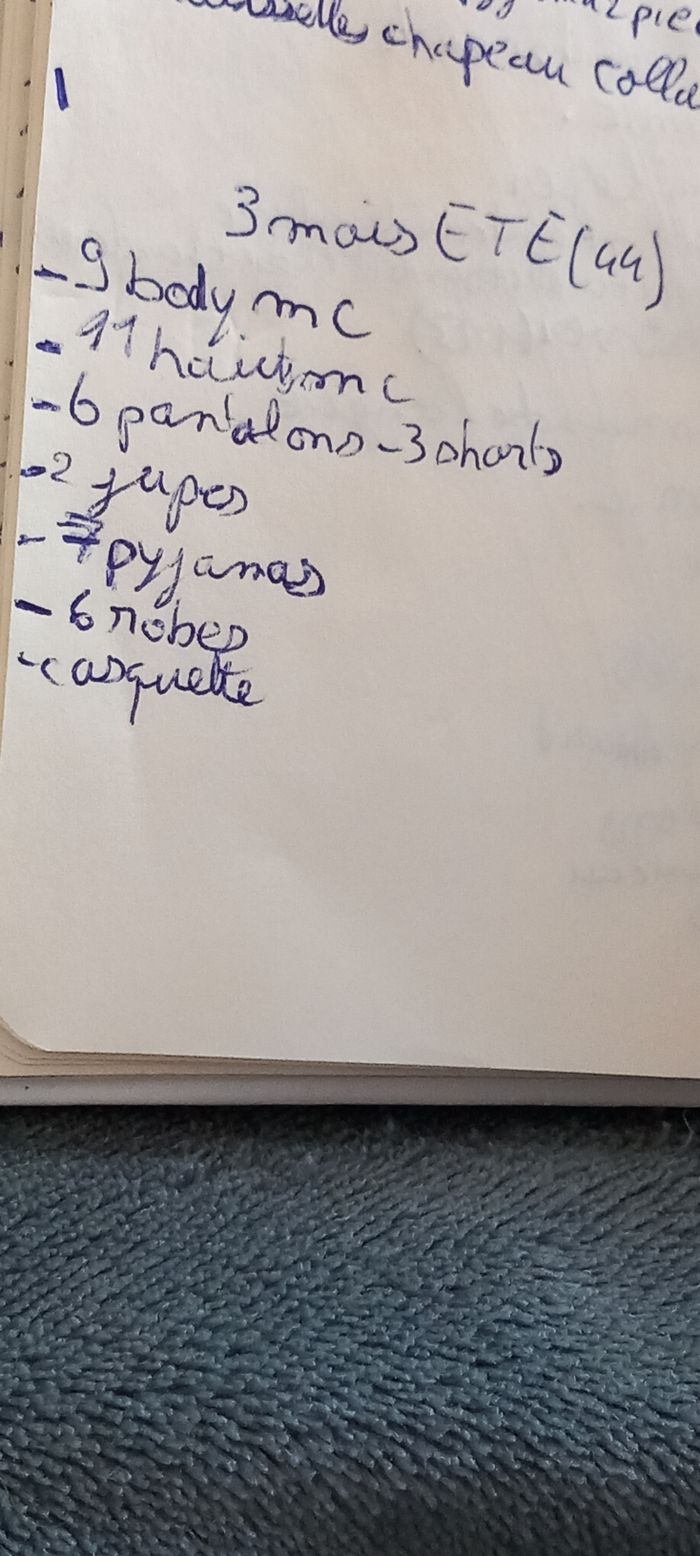 chapeau colla
3 mois ETE (44)
- 9 body mc
- 11 hauts mc
- 6 pantalons - 3 shorts
- 2 jupes
- 7 pyjamas
- 6 robes
- casquette